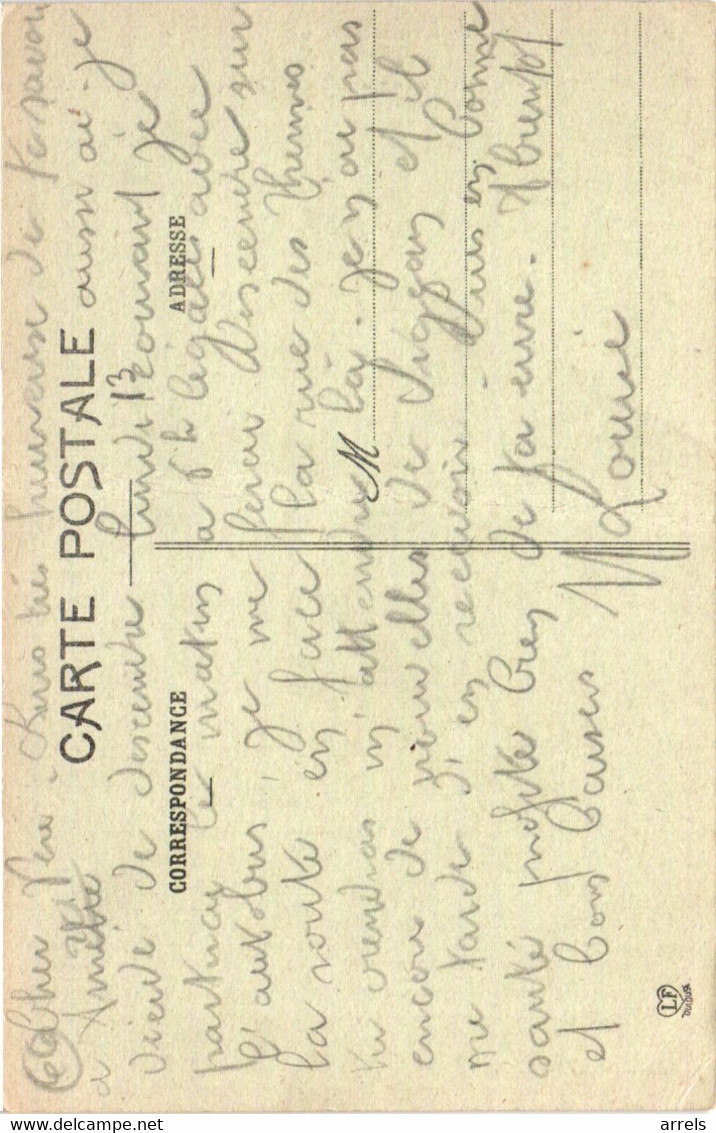 Cher Père. Suis très heureuse de te savoir
à Amélie
CARTE POSTALE
aussi ai-je
décidé de descendre lundi 13 courant je
CORRESPONDANCE
ADRESSE
partirai le matin à 6h légales avec
l'autobus, je me ferai descendre sur
la route en face la rue des Thermes
tu viendras m'attendre là. je n'ai pas
M
encore de nouvelles de et il
me tarde d'en recevoir. Suis en bonne
santé profite bien de ta cure. A bientôt
et bons baisers
Louise
LF
TOULOUSE
Delcampe.net
arrels